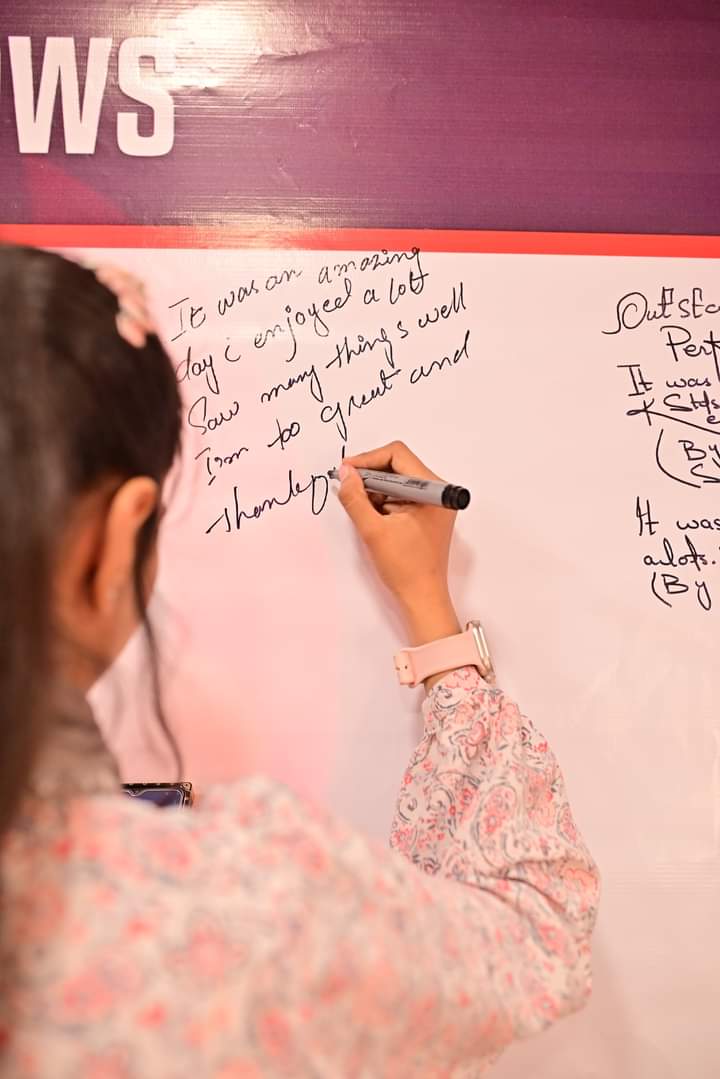 WS
It was an amazing
day i enjoyed a lott
Saw many things well
I am too great and
thanky
Outsta
Perf
It was
(By
It was
alots.
(By